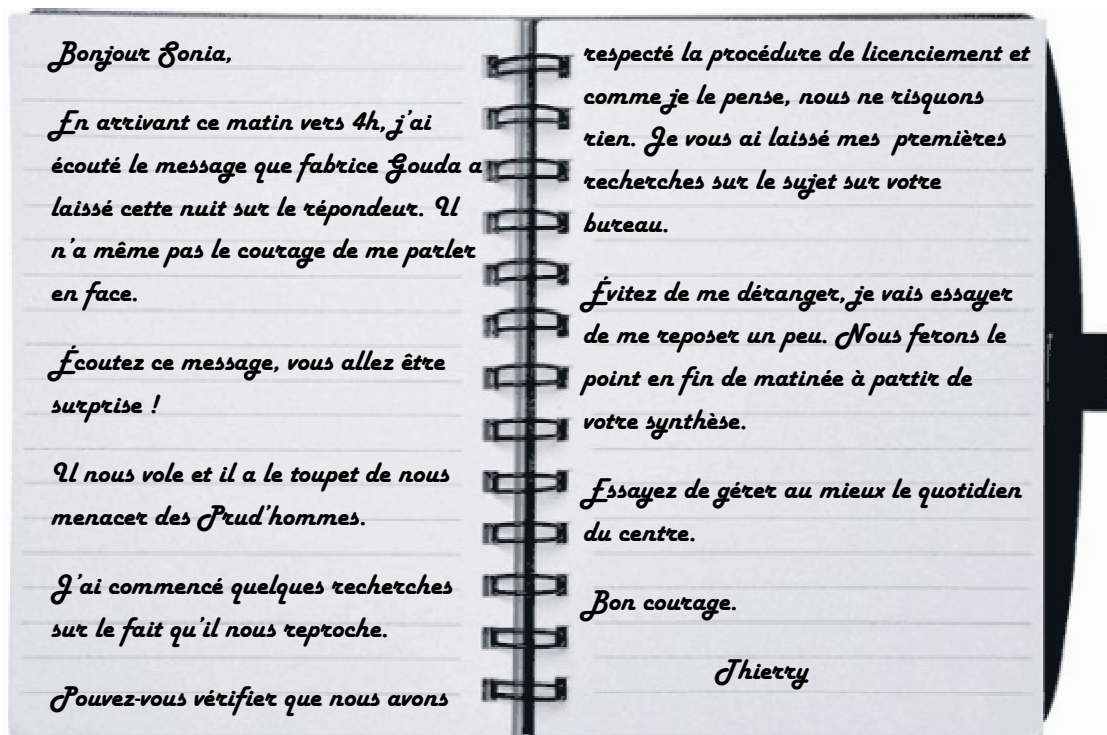 Bonjour Sonia,
En arrivant ce matin vers 4h, j'ai
écouté le message que fabrice Gouda a
laissé cette nuit sur le répondeur. Il
n'a même pas le courage de me parler
en face.
Écoutez ce message, vous allez être
surprise !
Il nous vole et il a le toupet de nous
menacer des Prud'hommes.
J'ai commencé quelques recherches
sur le fait qu'il nous reproche.
Pouvez-vous vérifier que nous avons
respecté la procédure de licenciement et
comme je le pense, nous ne risquons
rien. Je vous ai laissé mes premières
recherches sur le sujet sur votre
bureau.
Évitez de me déranger, je vais essayer
de me reposer un peu. Nous ferons le
point en fin de matinée à partir de
votre synthèse.
Essayez de gérer au mieux le quotidien
du centre.
Bon courage.
Thierry